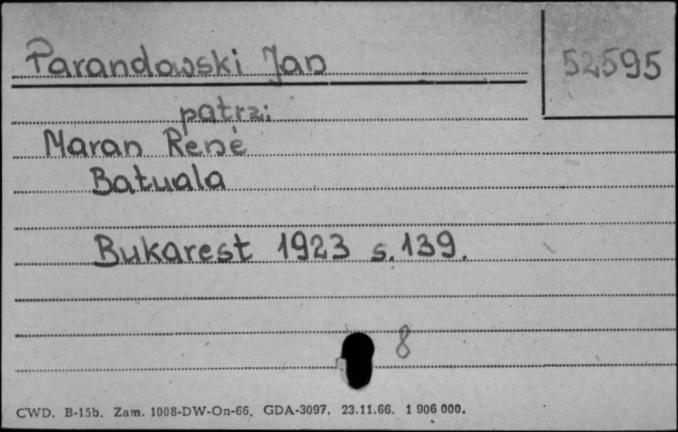 Parandowski Jan
52595
patrz:
Maran René
Batuala
Bukarest 1923 s. 139.
8
CWD. B-15b. Zam. 1008-DW-On-66. GDA-3097. 23.11.66. 1 906 000.